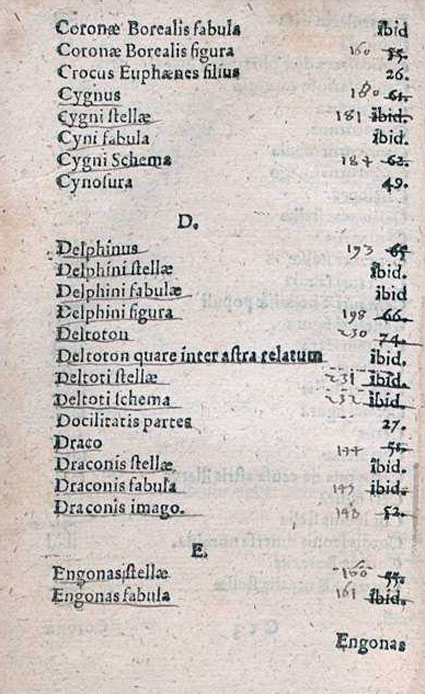 Coronæ Borealis fabula ibid
Coronæ Borealis figura 160 55.
Crocus Euphænes filius 26.
Cygnus 180 61.
Cygni stellæ 181 ibid.
Cyni fabula ibid.
Cygni Schema 187 62.
Cynosura 49.
D.
Delphinus 193 65
Delphini stellæ ibid.
Delphini fabulæ ibid
Delphini figura 198 66.
Deltoton 230 74.
Deltoton quare inter astra relatum ibid.
Deltoti stellæ 231 ibid.
Deltoti schema 232 ibid.
Docilitatis partes 27.
Draco
Draconis stellæ ibid.
Draconis fabula ibid.
Draconis imago. 52.
E.
Engonasi stellæ 160 55.
Engonas fabula 161 ibid.
Engonas